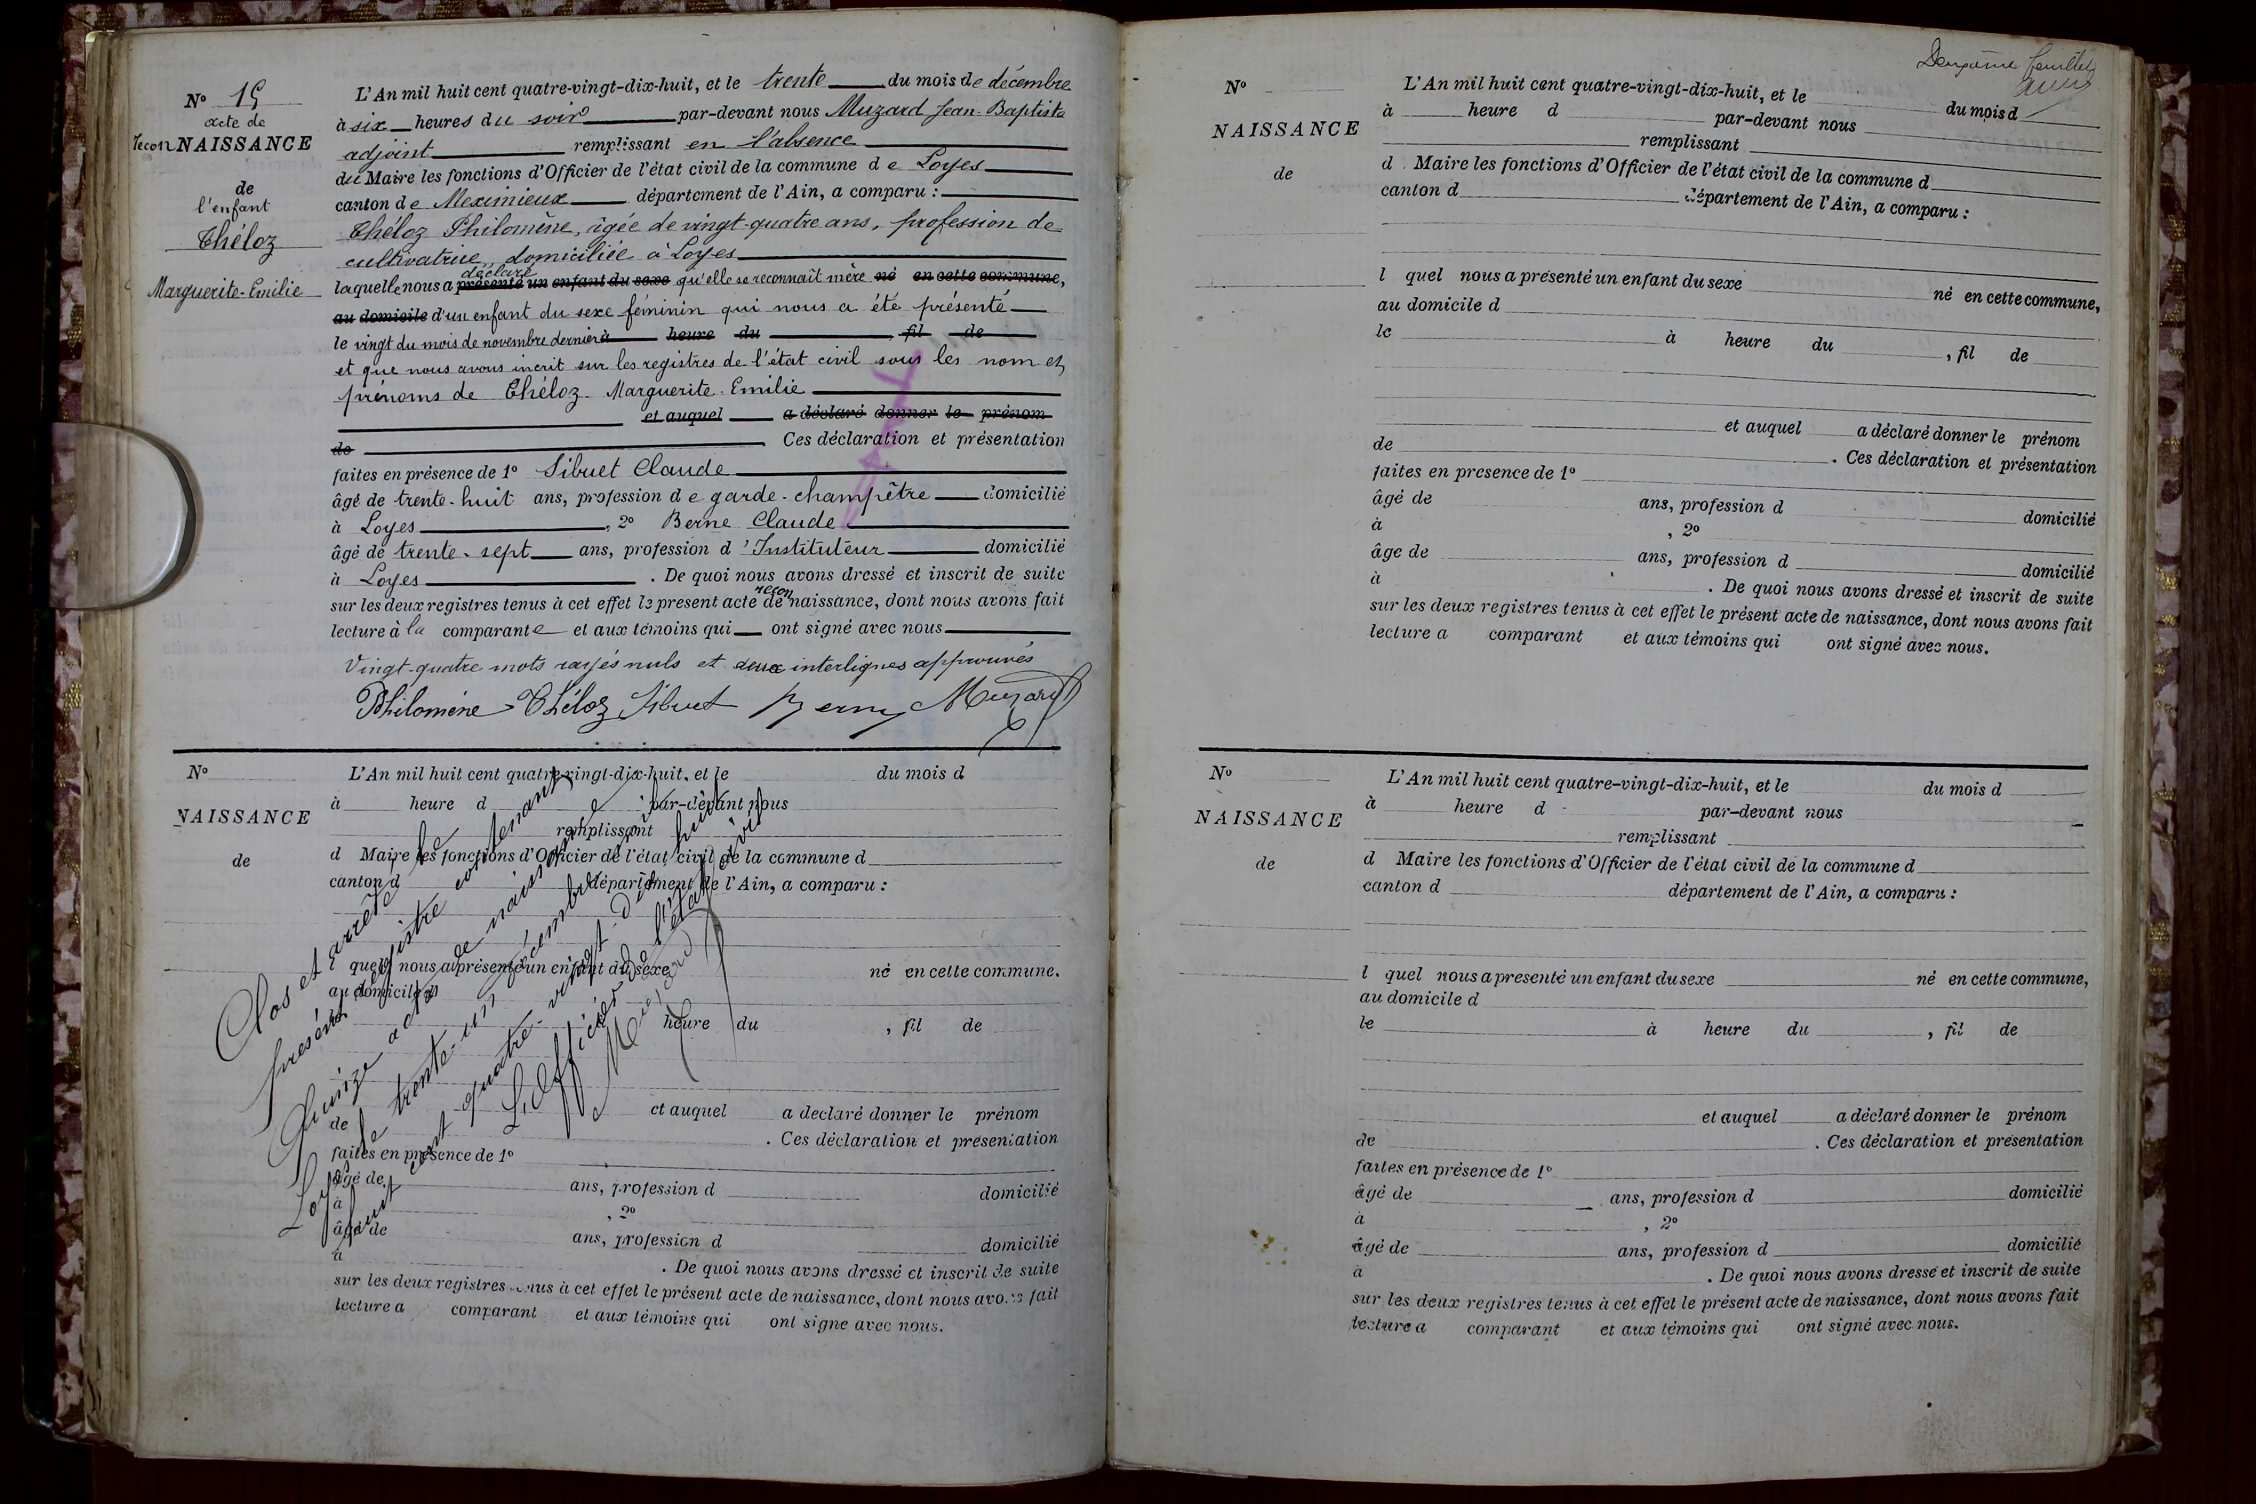 Nº 15
acte de
recon NAISSANCE
de
l'enfant
Théloz
Marguerite-Emilie
L'An mil huit cent quatre-vingt-dix-huit, et le trente du mois de décembre
à six heures du soir par-devant nous Muzard Jean-Baptiste
adjoint remplissant en l'absence
du Maire les fonctions d'Officier de l'état civil de la commune de Loyes
canton de Meximieux département de l'Ain, a comparu :
Théloz Philomène, âgée de vingt-quatre ans, profession de
cultivatrice, domiciliée à Loyes
déclaré
laquelle nous a présenté un enfant du sexe qu'elle se reconnaît mère né en cette commune,
au domicile d'un enfant du sexe féminin qui nous a été présenté
le vingt du mois de novembre dernier à heure du , fil de
et que nous avons incrit sur les registres de l'état civil sous les nom et
prénoms de Théloz Marguerite-Emilie
et auquel a déclaré donner le prénom
de Ces déclaration et présentation
faites en présence de 1º Sibuet Claude
âgé de trente-huit ans, profession de garde-champêtre domicilié
à Loyes , 2º Berne Claude
âgé de trente-sept ans, profession d'Instituteur domicilié
à Loyes . De quoi nous avons dressé et inscrit de suite
recon
sur les deux registres tenus à cet effet le présent acte de naissance, dont nous avons fait
lecture à la comparante et aux témoins qui ont signé avec nous
Vingt-quatre mots rayés nuls et deux interlignes approuvés
Philomène Théloz Sibuet Berne Muzard
Nº
NAISSANCE
de
L'An mil huit cent quatre-vingt-dix-huit, et le du mois d
à heure d par-devant nous
remplissant
d Maire les fonctions d'Officier de l'état civil de la commune d
canton d département de l'Ain, a comparu :
l quel nous a présenté un enfant du sexe né en cette commune.
au domicile d
heure du , fil de
et auquel a déclaré donner le prénom
de . Ces déclaration et présentation
faites en présence de 1º
âgé de ans, profession d domicilié
à , 2º
âgé de ans, profession d domicilié
à . De quoi nous avons dressé et inscrit de suite
sur les deux registres tenus à cet effet le présent acte de naissance, dont nous avons fait
lecture a comparant et aux témoins qui ont signé avec nous.
Clos et arrêté le
présent registre contenant
Quinze actes de naissance
Loyes le trente-un décembre mil
huit cent quatre-vingt-dix huit
L'officier de l'état civil
Muzard
Deuxième feuillet
Nº
NAISSANCE
de
L'An mil huit cent quatre-vingt-dix-huit, et le du mois d
à heure d par-devant nous
remplissant
d Maire les fonctions d'Officier de l'état civil de la commune d
canton d département de l'Ain, a comparu :
l quel nous a présenté un enfant du sexe né en cette commune,
au domicile d
le à heure du , fil de
et auquel a déclaré donner le prénom
de . Ces déclaration et présentation
faites en présence de 1º
âgé de ans, profession d domicilié
à , 2º
âgé de ans, profession d domicilié
à . De quoi nous avons dressé et inscrit de suite
sur les deux registres tenus à cet effet le présent acte de naissance, dont nous avons fait
lecture a comparant et aux témoins qui ont signé avec nous.
Nº
NAISSANCE
de
L'An mil huit cent quatre-vingt-dix-huit, et le du mois d
à heure d par-devant nous
remplissant
d Maire les fonctions d'Officier de l'état civil de la commune d
canton d département de l'Ain, a comparu :
l quel nous a présenté un enfant du sexe né en cette commune,
au domicile d
le à heure du , fil de
et auquel a déclaré donner le prénom
de . Ces déclaration et présentation
faites en présence de 1º
âgé de ans, profession d domicilié
à , 2º
âgé de ans, profession d domicilié
à . De quoi nous avons dressé et inscrit de suite
sur les deux registres tenus à cet effet le présent acte de naissance, dont nous avons fait
lecture a comparant et aux témoins qui ont signé avec nous.